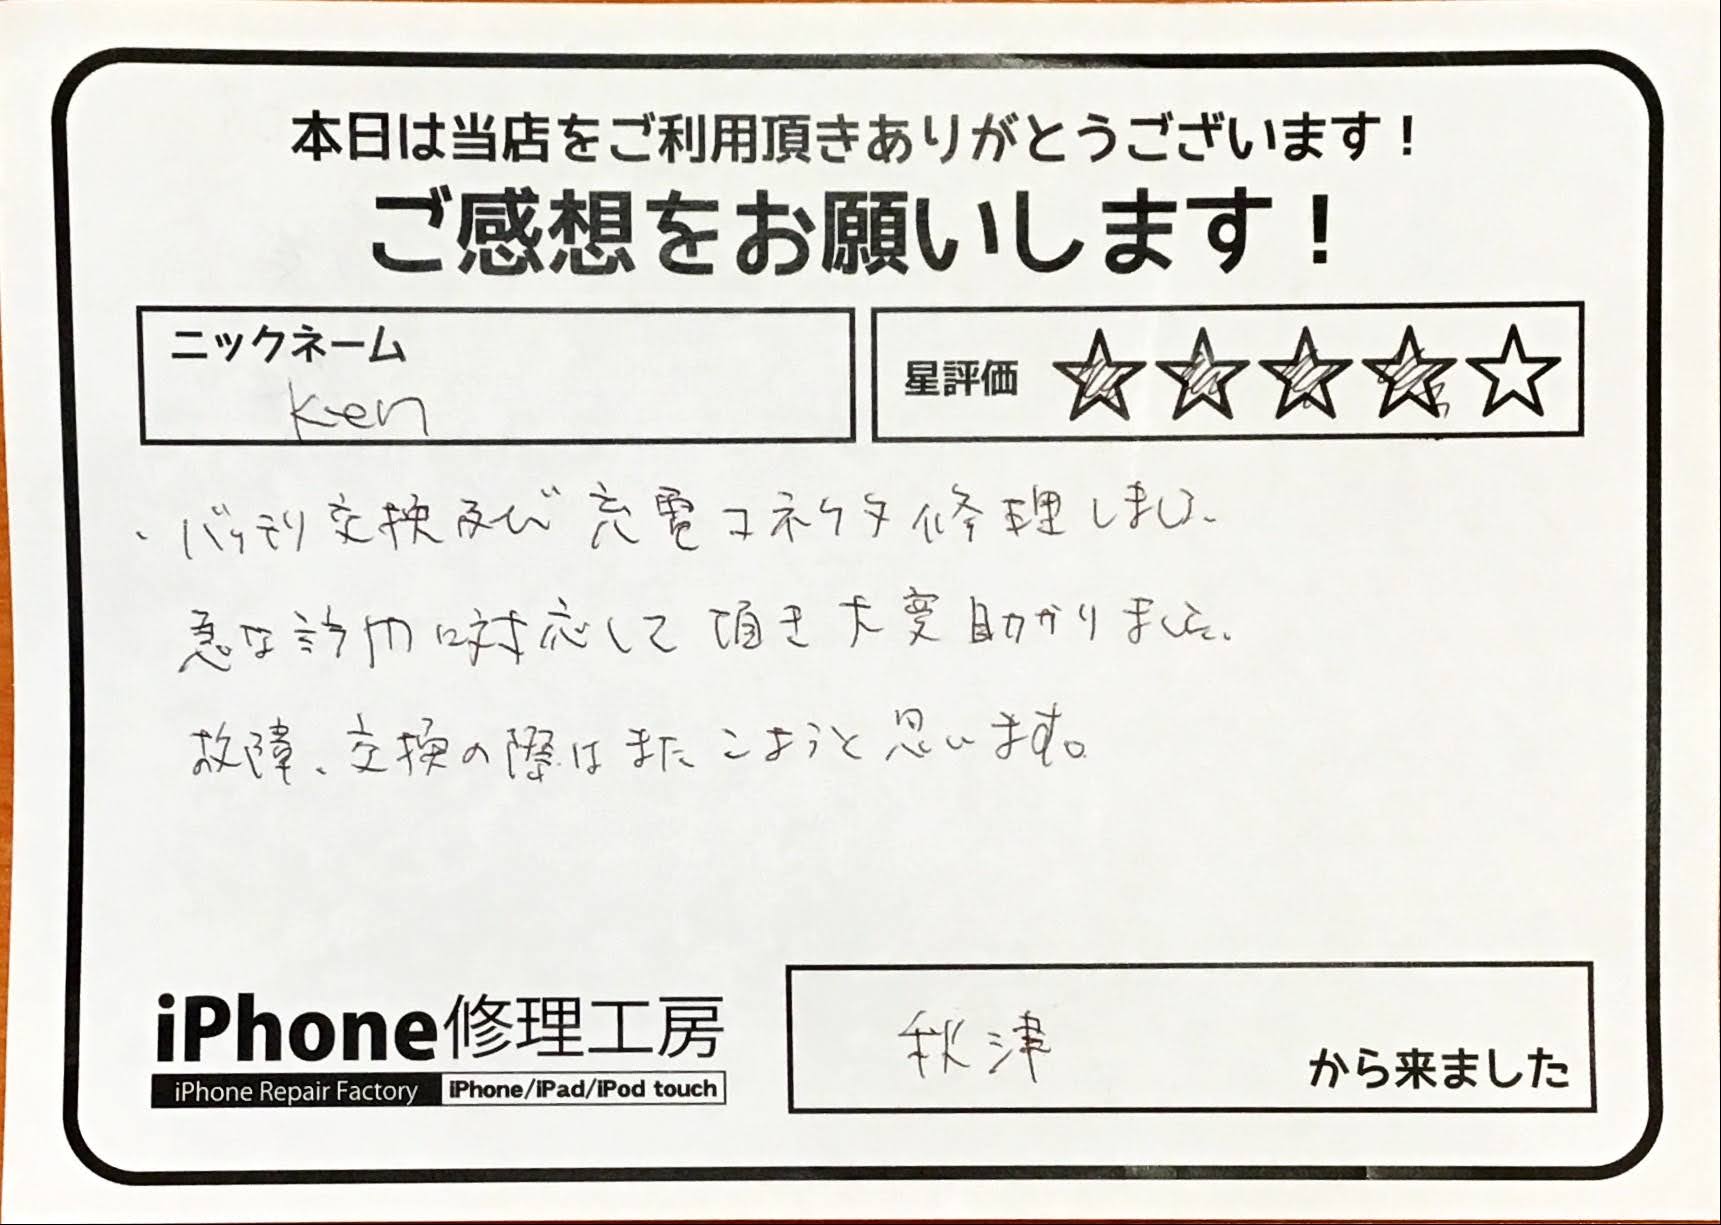 本日は当店をご利用頂きありがとうございます！
ご感想をお願いします！
ニックネーム
Ken
星評価
・バッテリ交換及び充電コネクタ修理しました。
急な訪問に対応して頂き大変助かりました。
故障、交換の際はまたこようと思います。
iPhone修理工房
iPhone Repair Factory iPhone/iPad/iPod touch
秋津
から来ました